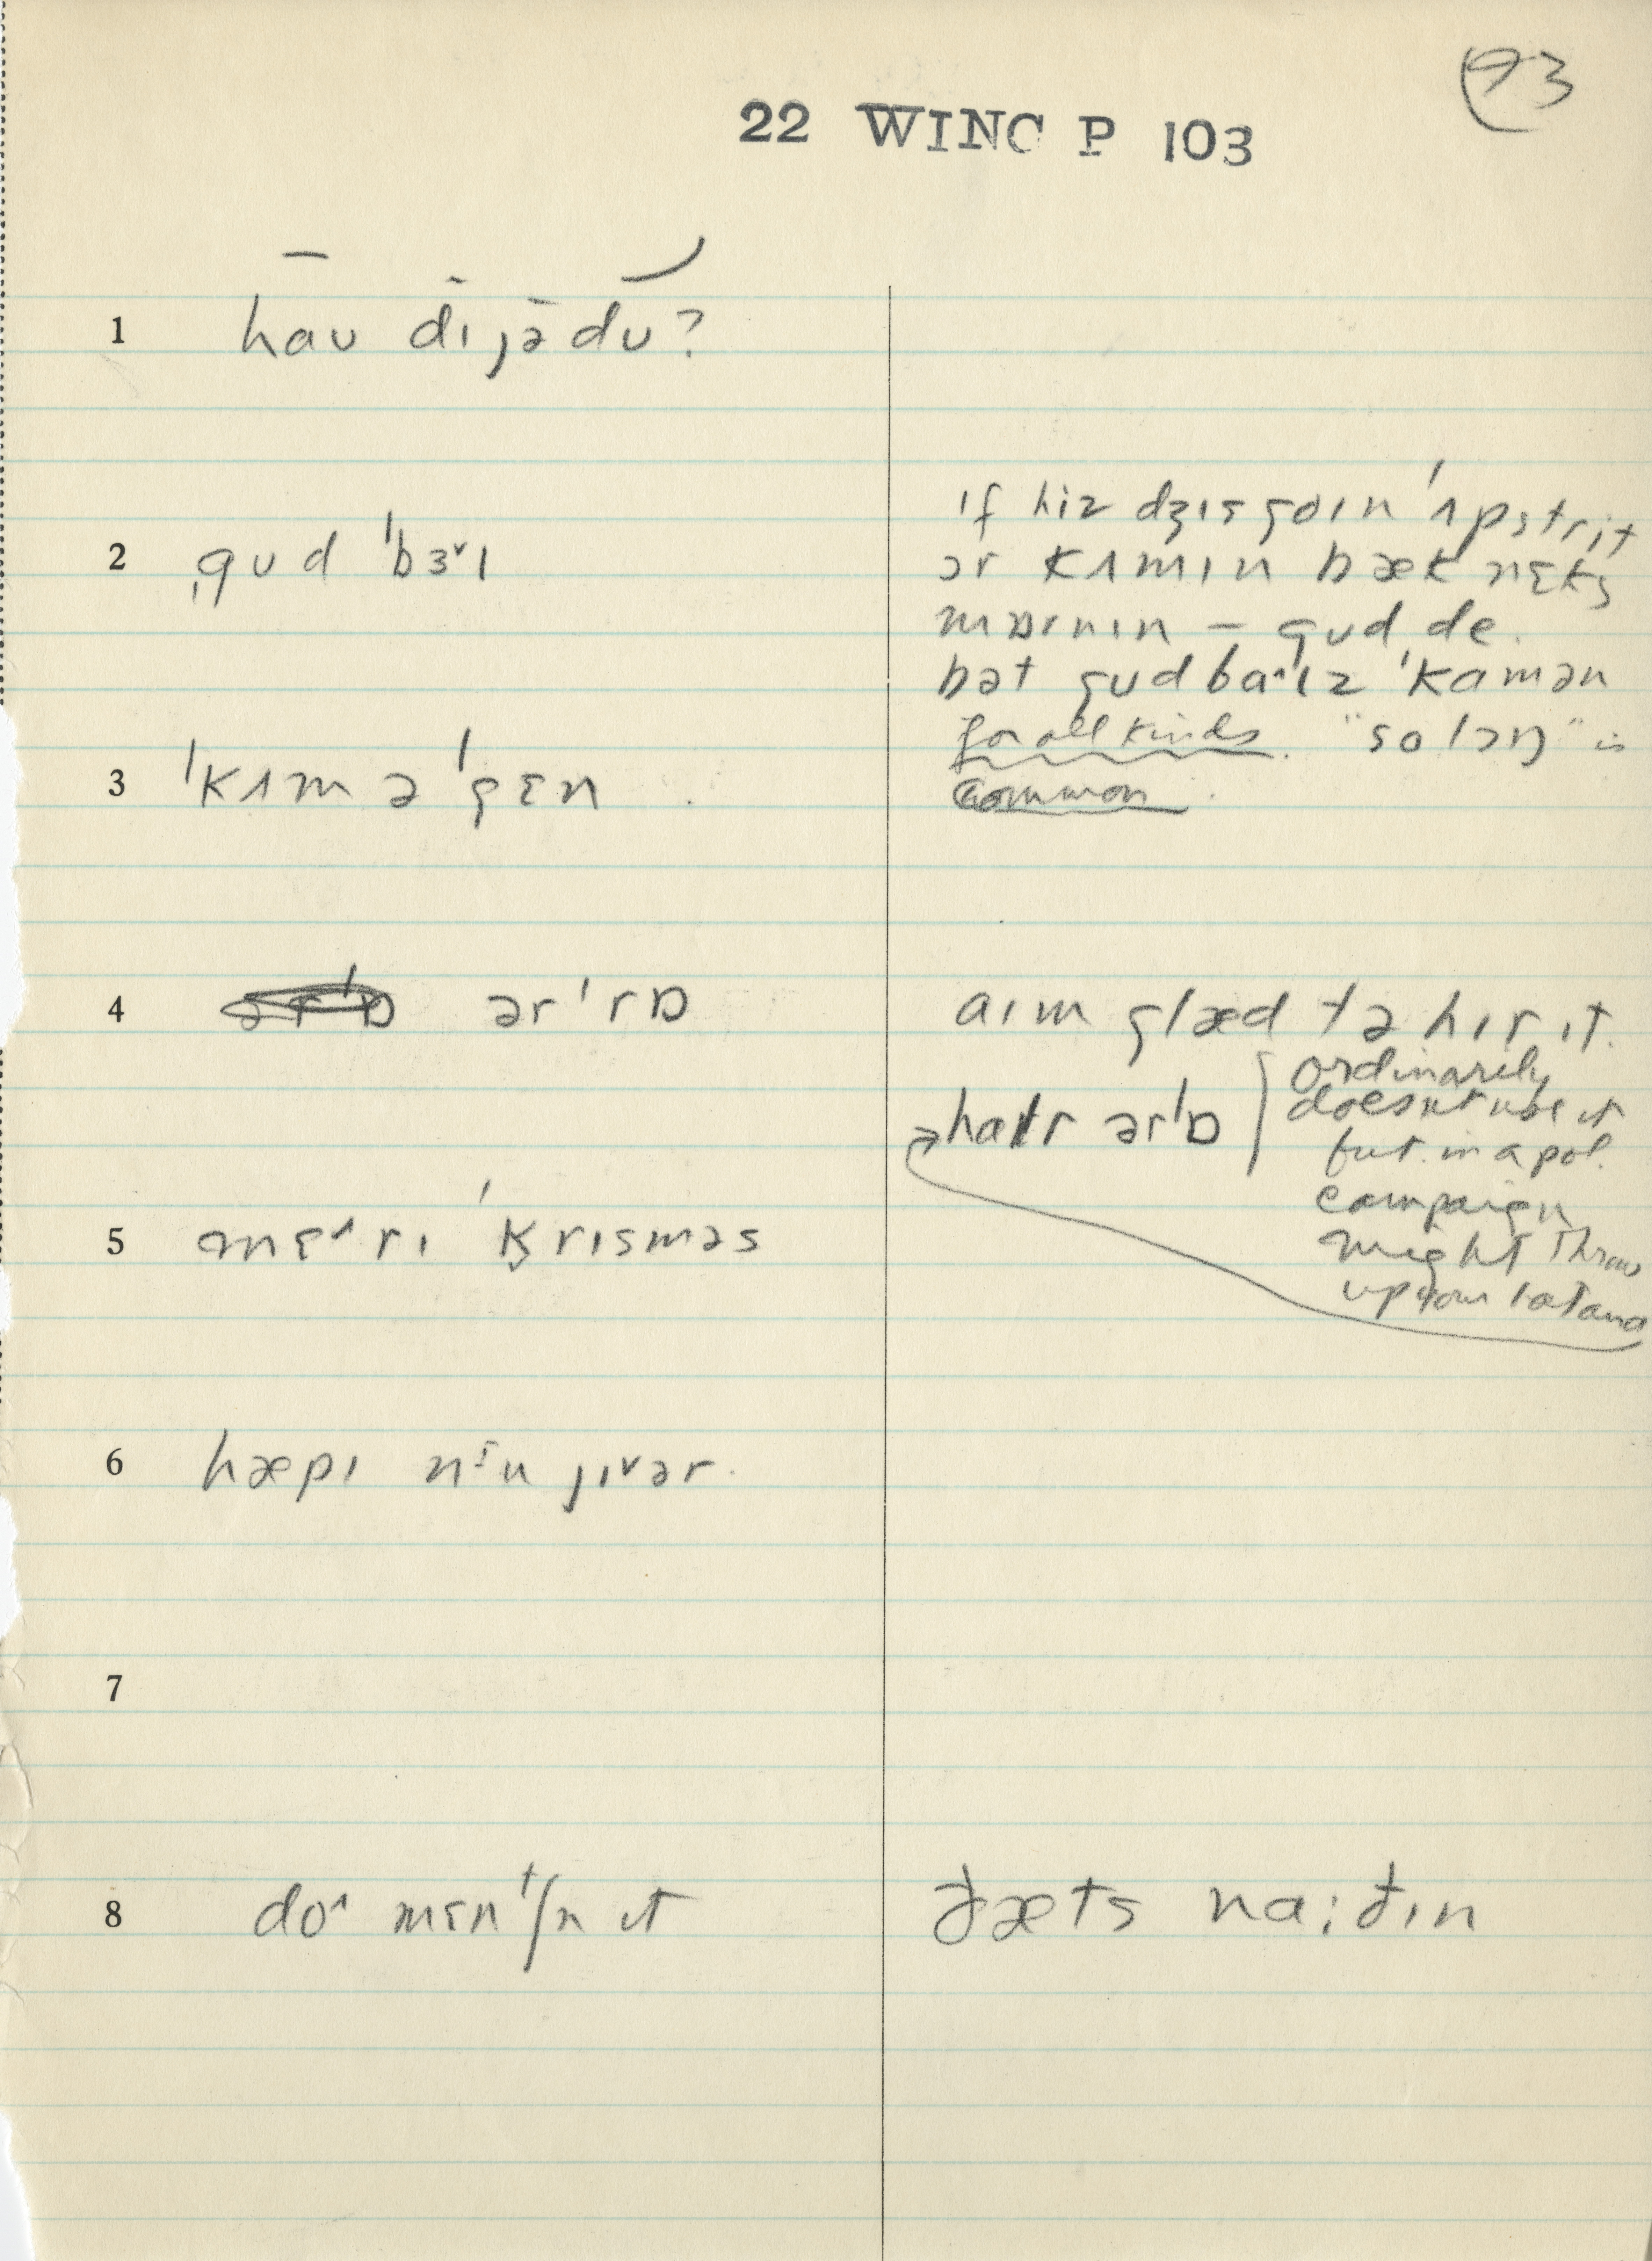 93
22 WINC P 103
1 haʊ dɪ jə dʊ?
2 ˌgʊd ˈbɜ˅ɪ
ɪf hiz dʒɪs goɪn ˈʌpstrit
ər kʌmɪn bæk nɛks
mɒrnɪn – gʊd de.
bət gʊdba˄ɪz ˈkamən
for all kinds. "so lɔŋ" is
common.
3 ˈkʌm əˈgɛn.
4 ərˈrɒ
aɪm glæd tə hɪr ɪt.
haɪr ərˈɒ
ordinarily
doesn't use it
but in a pol.
campaign
might throw
up your
5 mɛ˄rɪ ˈkrɪsməs
6 hæpɪ nɪu jɪ˅ər.
7
8 do˄ mɛnᵗʃn it
ðæts na:ðɪn